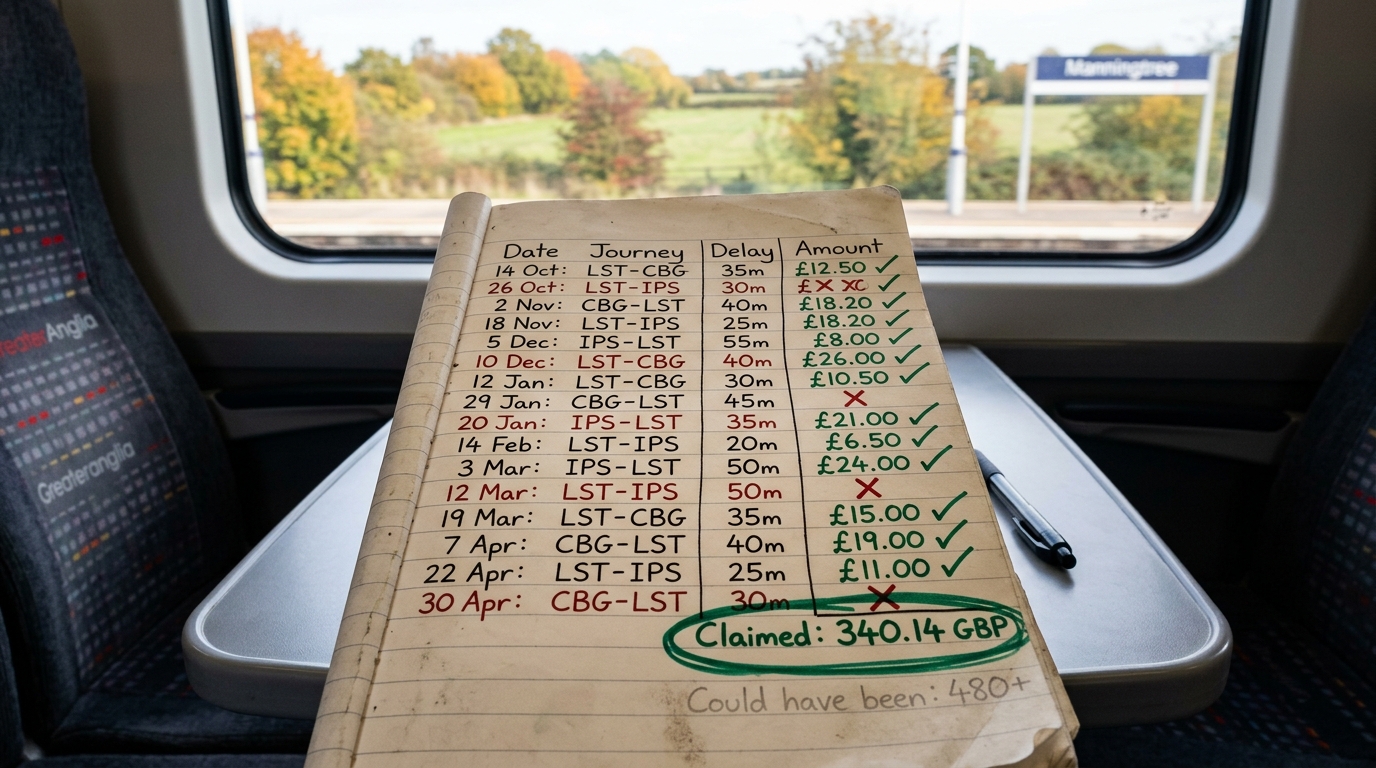 Manningtree
Date Journey Delay Amount
14 Oct: LST-CBG 35m £12.50 ✓
26 Oct: LST-IPS 30m £✗ ✗C ✓
2 Nov: CBG-LST 40m £18.20 ✓
18 Nov: LST-IPS 25m £18.20 ✓
5 Dec: IPS-LST 55m £8.00 ✓
10 Dec: LST-CBG 40m £26.00 ✓
12 Jan: LST-CBG 30m £10.50 ✓
29 Jan: CBG-LST 45m ✗
20 Jan: IPS-LST 35m £21.00 ✓
14 Feb: LST-IPS 20m £6.50 ✓
3 Mar: IPS-LST 50m £24.00 ✓
12 Mar: LST-IPS 50m ✗
19 Mar: LST-CBG 35m £15.00 ✓
7 Apr: CBG-LST 40m £19.00 ✓
22 Apr: LST-IPS 25m £11.00 ✓
30 Apr: CBG-LST 30m ✗
Claimed: 340.14 GBP
Could have been: 480+
eaterAnglia
Greateranglia